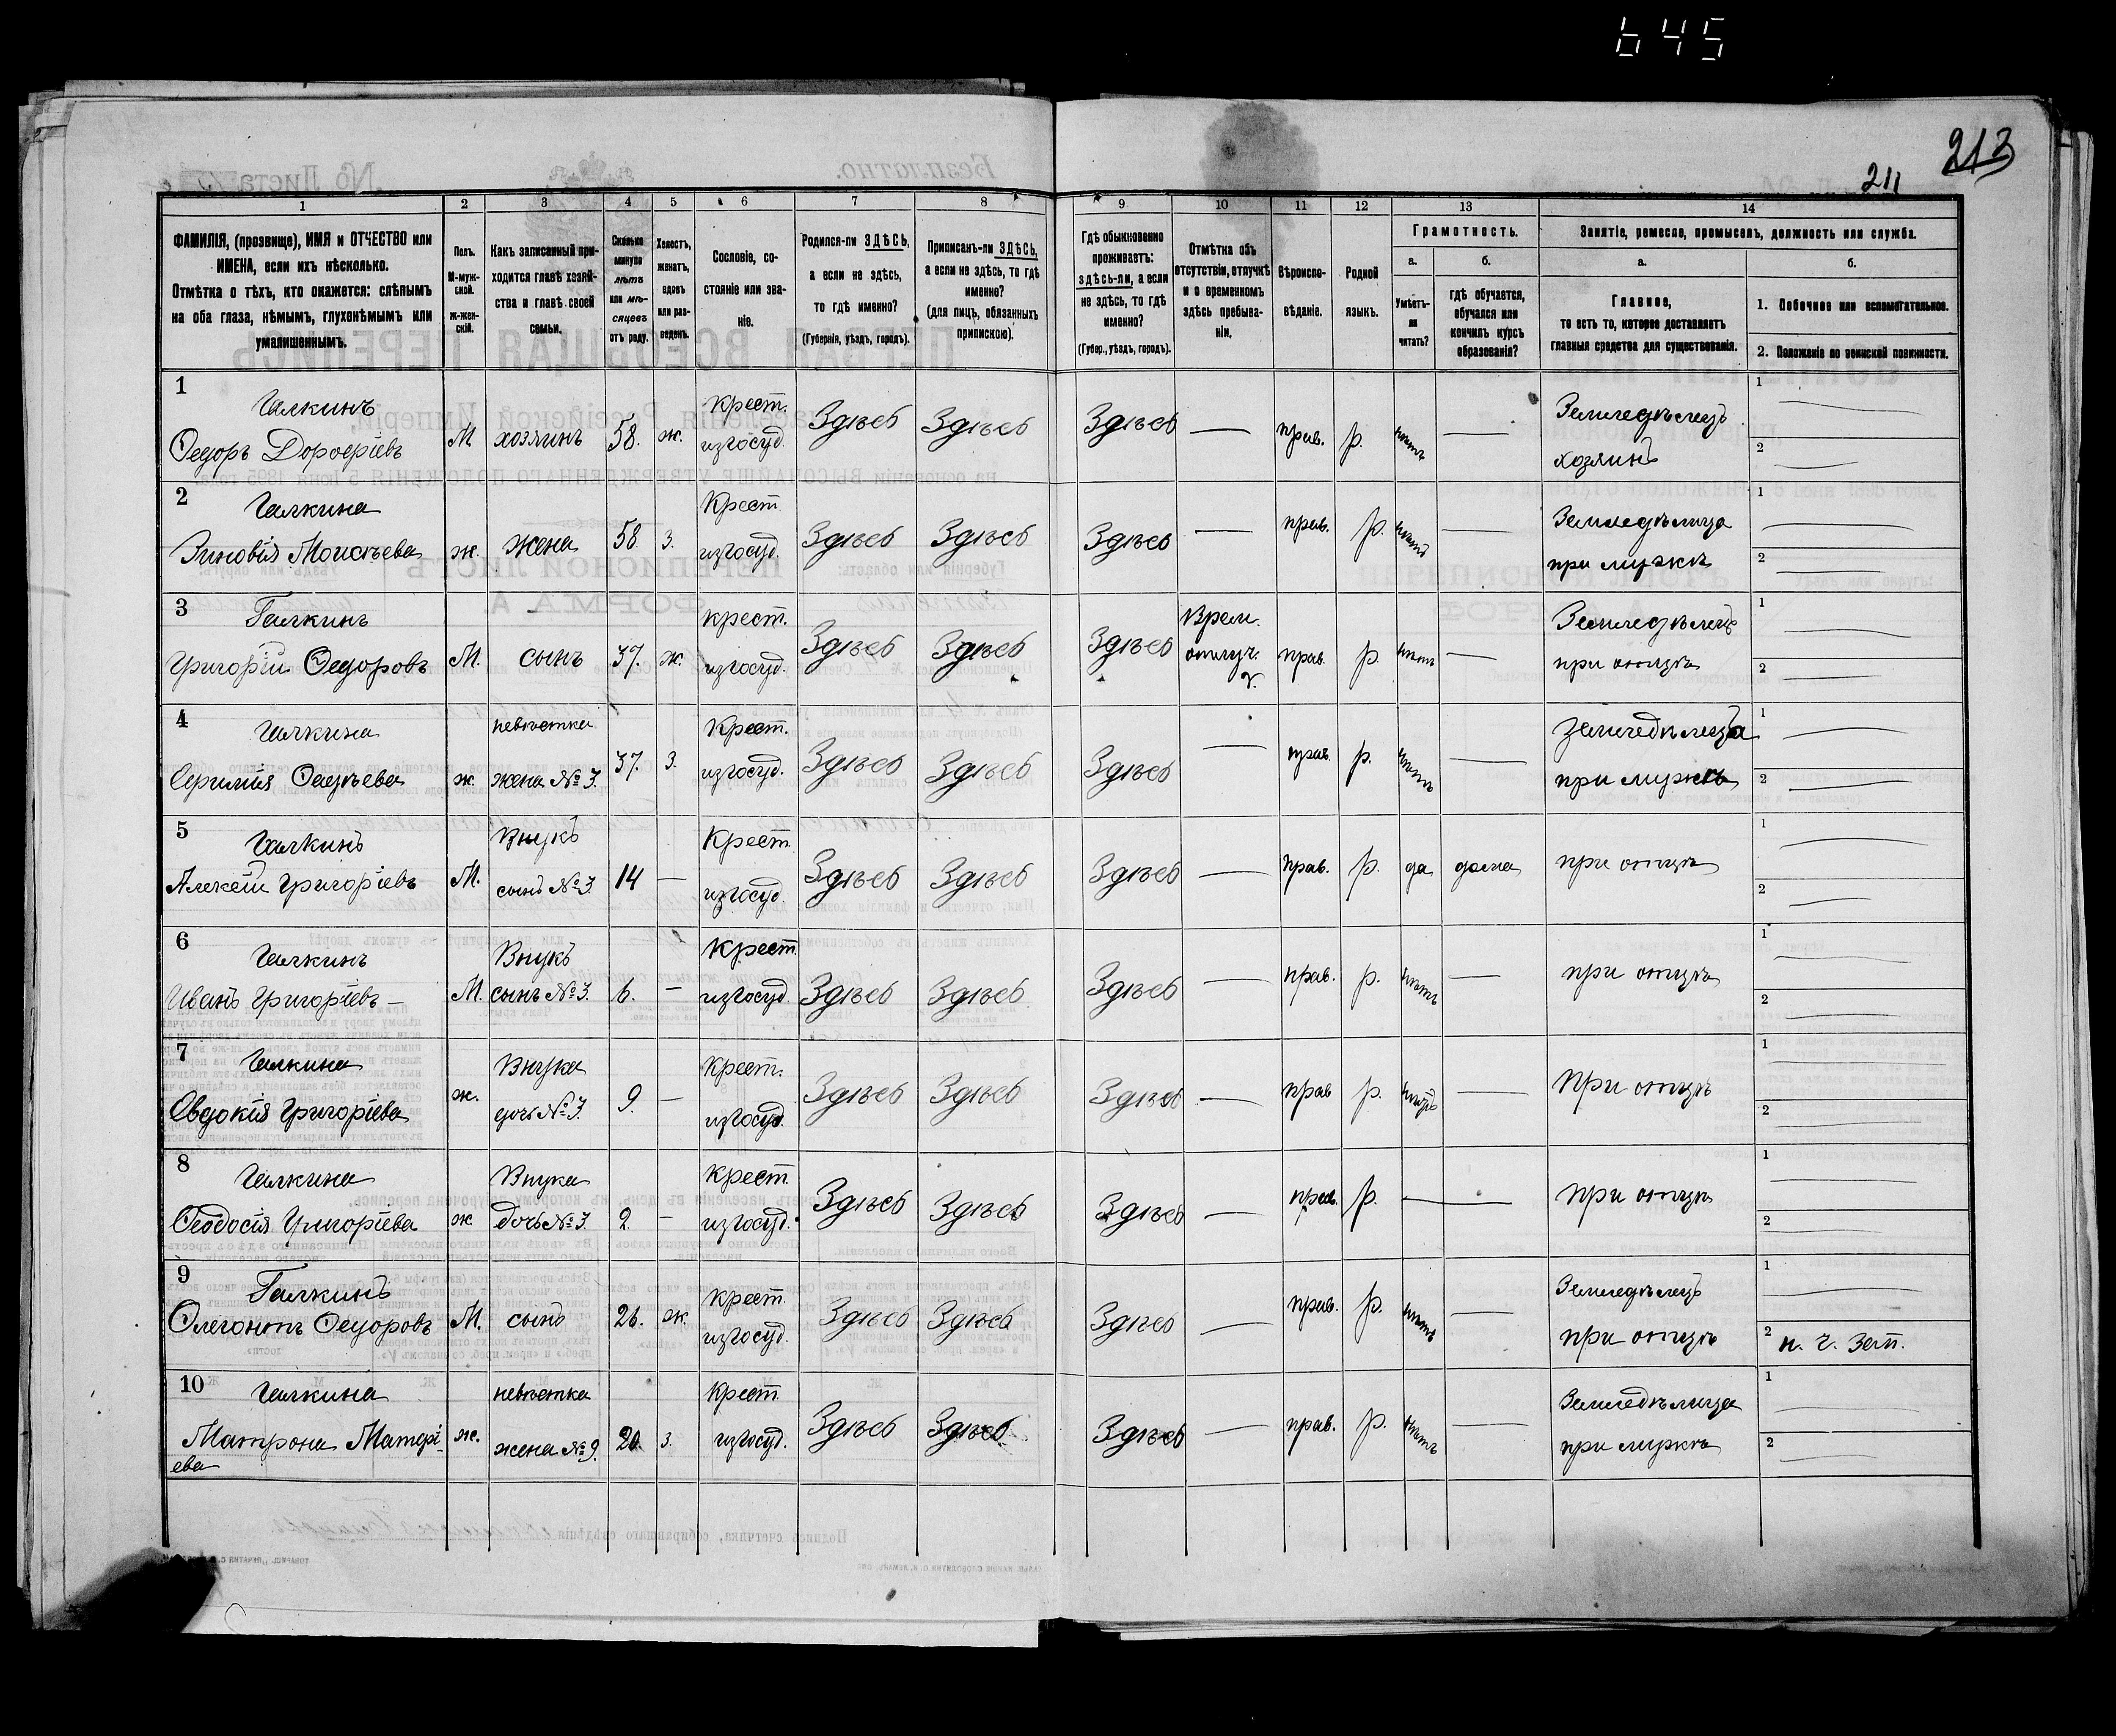 645
213
211
1
2
3
4
5
6
7
8
9
10
11
12
13
14
ФАМИЛІЯ, (прозвище), ИМЯ и ОТЧЕСТВО или
ИМЕНА, если ихъ нѣсколько.
Отмѣтка о тѣхъ, кто окажется: слѣпымъ
на оба глаза, нѣмымъ, глухонѣмымъ или
умалишеннымъ.
Полъ.
М-муж-
ской.
ж-жен-
скій.
Какъ записанный при-
ходится главѣ хозяй-
ства и главѣ своей
семьи.
Сколько
минуло
лѣтъ
или мѣ-
сяцевъ
отъ роду.
Холостъ,
женатъ,
вдовъ
или раз-
веденъ.
Сословіе, со-
стояніе или зва-
ніе.
Родился-ли ЗДѢСЬ,
а если не здѣсь,
то гдѣ именно?
(Губернія, уѣздъ, городъ).
Приписанъ-ли ЗДѢСЬ,
а если не здѣсь, то гдѣ
именно?
(для лицъ, обязанныхъ
припискою).
Гдѣ обыкновенно
проживаетъ:
здѣсь-ли, а если
не здѣсь, то гдѣ
именно?
(Губер., уѣздъ, городъ).
Отмѣтка объ
отсутствіи, отлучкѣ
и о временномъ
здѣсь пребыва-
ніи.
Вѣроиспо-
вѣданіе.
Родной
языкъ.
Грамотность.
а.
Умѣетъ-
ли
читать?
б.
гдѣ обучается,
обучался или
кончилъ курсъ
образованія?
Занятіе, ремесло, промыселъ, должность или служба.
а.
Главное,
то есть то, которое доставляетъ
главныя средства для существованія.
б.
1. Побочное или вспомогательное.
2. Положеніе по воинской повинности.
1
Галкинъ
Ѳедоръ Дороѳеевъ
М
хозяинъ
58.
ж.
Крест.
изъ госуд.
Здѣсь
Здѣсь
Здѣсь
—
прав.
р.
нѣтъ
—
Земледѣлецъ
хозяинъ
1
2
2
Галкина
Зиновія Моисѣева
ж.
жена
58
з.
Крест.
изъ госуд.
Здѣсь
Здѣсь
Здѣсь
—
прав.
р.
нѣтъ
—
Земледѣлица
при мужѣ
1
2
3
Галкинъ
Григорій Ѳедоровъ
М.
сынъ
37.
ж.
крест.
изъ госуд.
Здѣсь
Здѣсь
Здѣсь
Врем.
отлуч.
прав.
р.
нѣтъ
—
Земледѣлецъ
при отцѣ
1
2
4
Галкина
ж.
невѣстка
жена №3.
37.
з.
Крест.
изъ госуд.
Здѣсь
Здѣсь
Здѣсь
—
прав.
р.
нѣтъ
—
Земледѣлица
при мужѣ
1
2
5
Галкинъ
Алексѣй Григорьевъ
М.
Внукъ
сынъ №3
14
—
Крест.
изъ госуд.
Здѣсь
Здѣсь
Здѣсь
—
прав.
р.
да
дома
при отцѣ
1
2
6
Галкинъ
Иванъ Григорьевъ
М.
Внукъ
сынъ №3.
6.
—
Крест.
изъ госуд.
Здѣсь
Здѣсь
Здѣсь
—
прав.
р.
нѣтъ
—
при отцѣ
1
2
7
Галкина
Овдокія Григоріева
ж.
Внука
дочь №3.
9.
—
Крест.
изъ госуд.
Здѣсь
Здѣсь
Здѣсь
—
прав
р.
нѣтъ
—
При отцѣ
1
2
8
Галкина
Ѳеодосія Григоріева
ж
Внука
дочь №3.
2.
—
Крест
изъ госуд.
Здѣсь
Здѣсь
Здѣсь
—
прав.
р.
—
при отцѣ
1
2
9
Галкинъ
Флегонтъ Ѳедоровъ
М.
сынъ
26.
ж.
крест.
изъ госуд.
Здѣсь
Здѣсь
Здѣсь
—
прав.
р.
нѣтъ
—
Земледѣлецъ
при отцѣ
1
2
10
Галкина
Матрона Матѳі-
ева
ж.
невѣстка
жена №9.
20
з.
Крест.
изъ госуд.
Здѣсь
Здѣсь
Здѣсь
—
прав.
р.
нѣтъ
—
Земледѣлица
при мужѣ
1
2